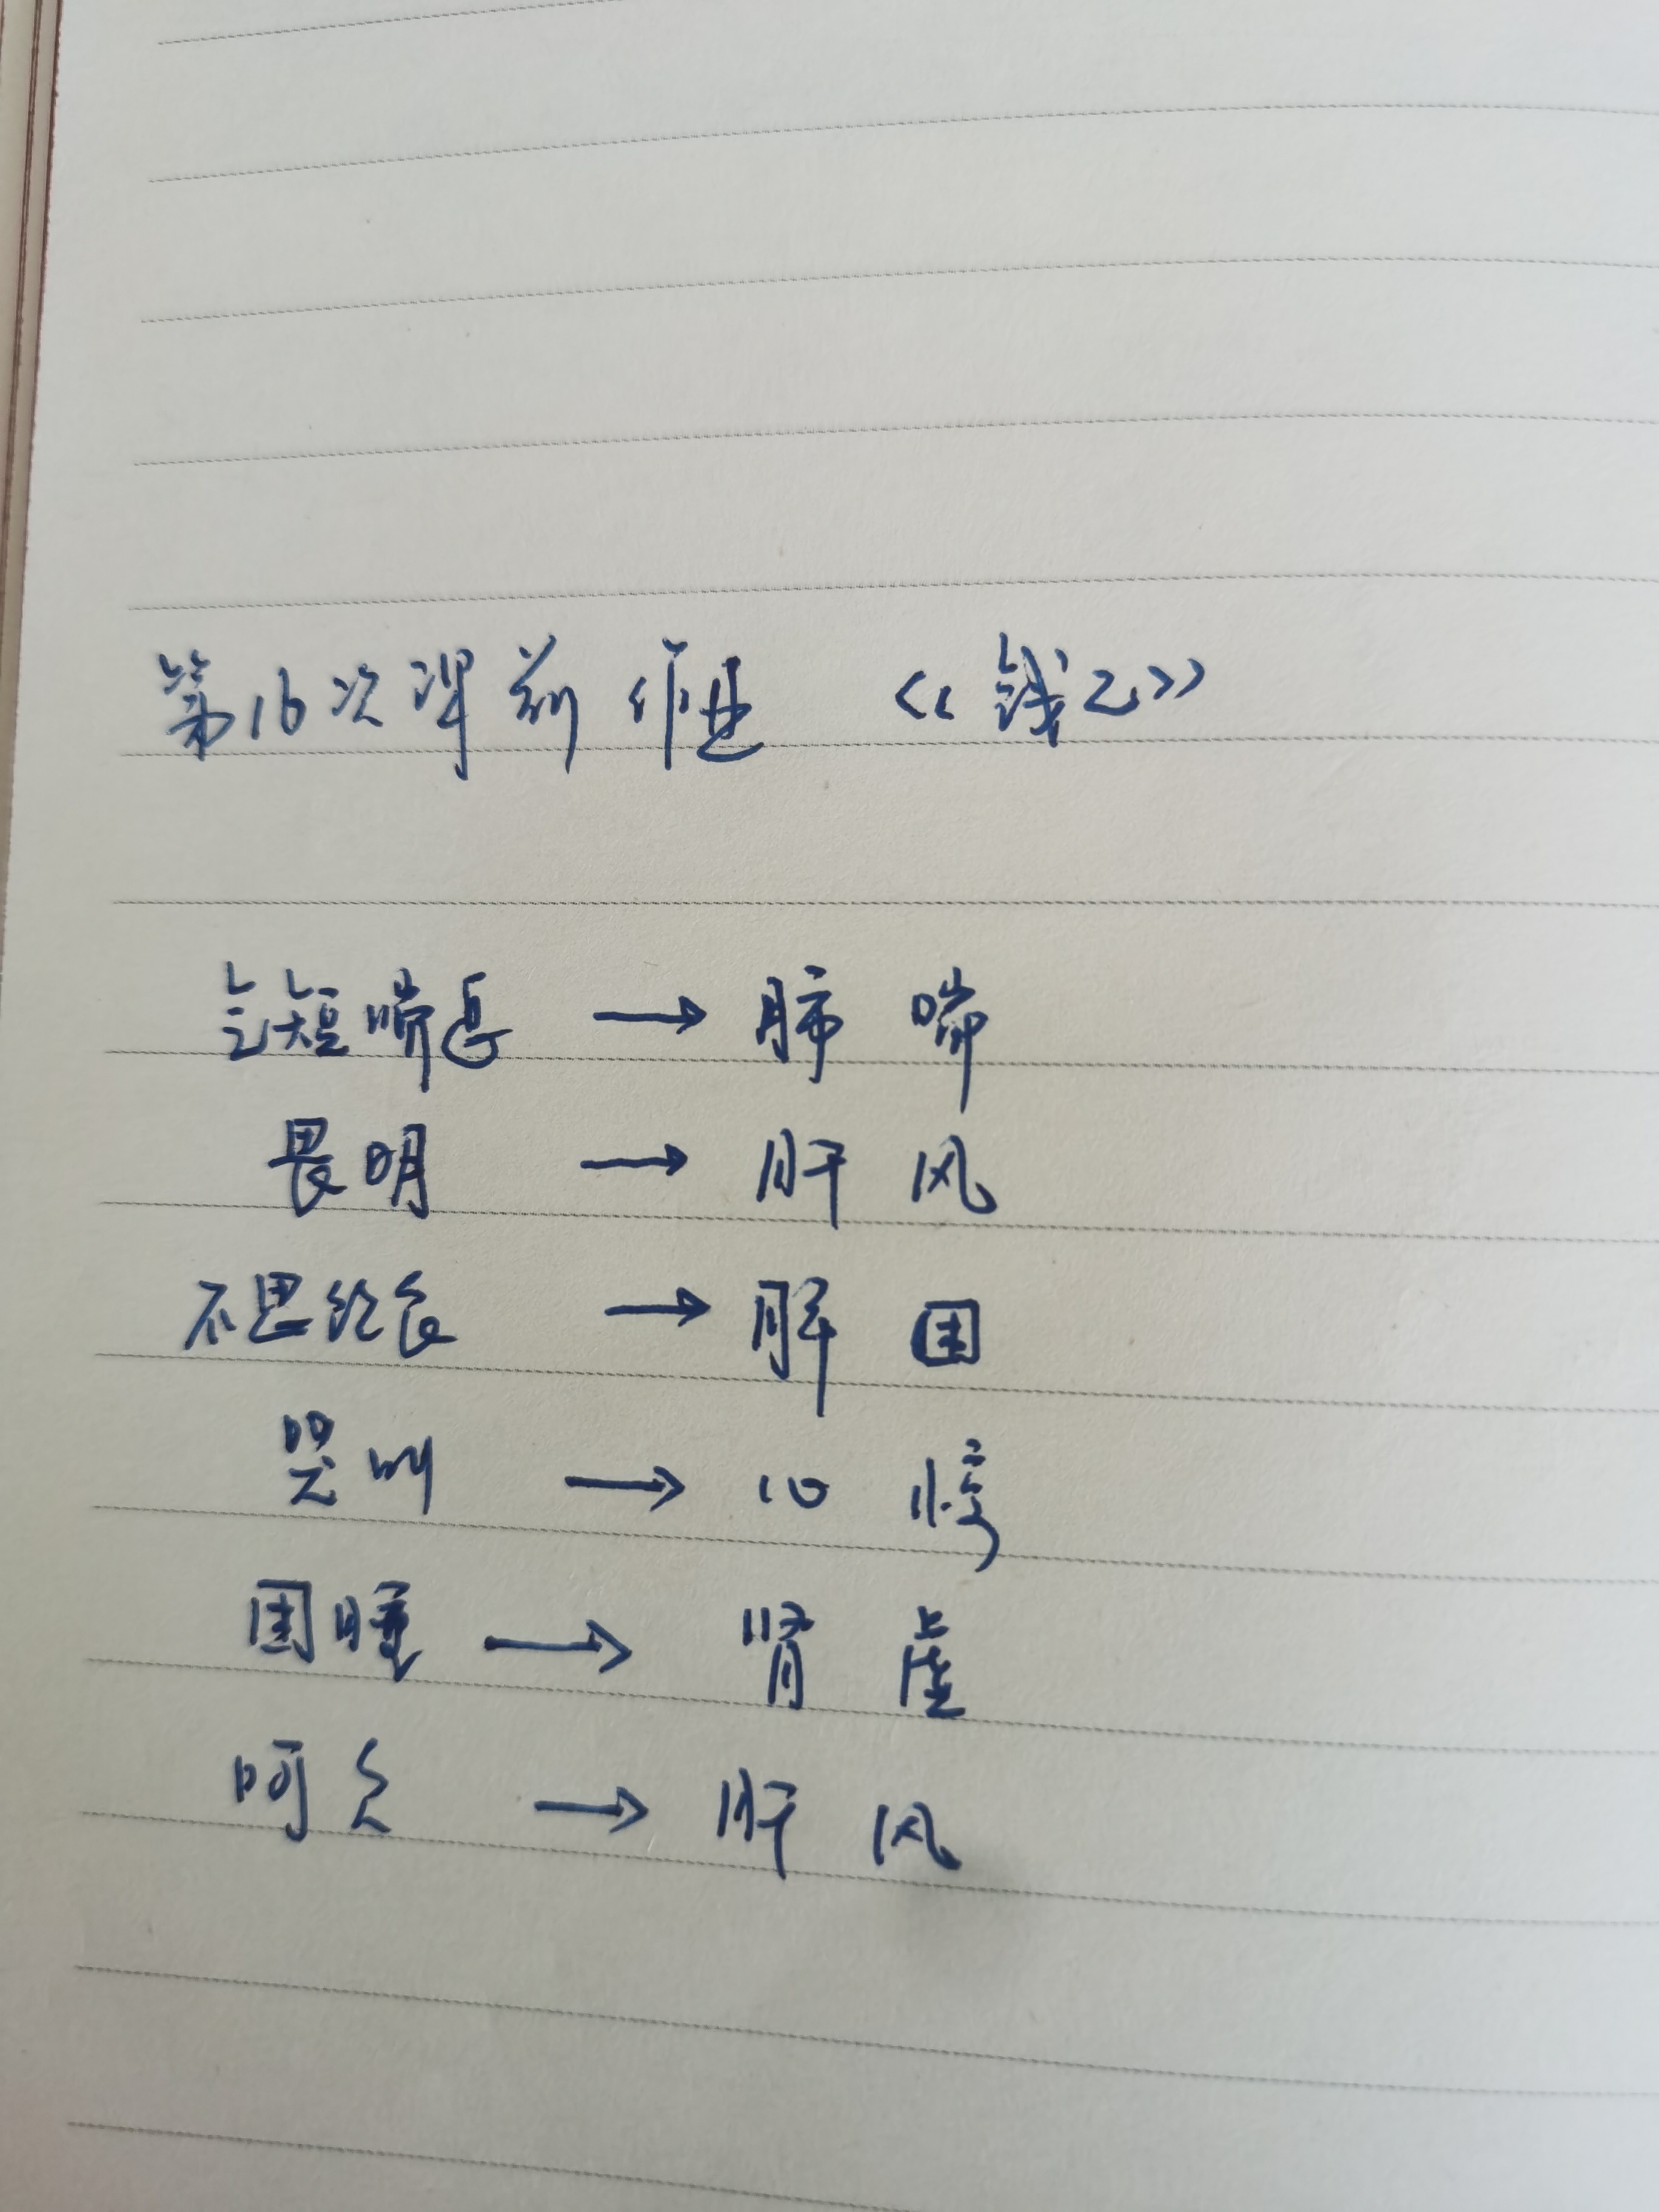 第16次课前作业 《钱乙》
气短喘急 → 肺 喘
畏明 → 肝 风
不思饮食 → 脾 困
哭叫 → 心 悸
困睡 → 肾 虚
呵欠 → 肝 风